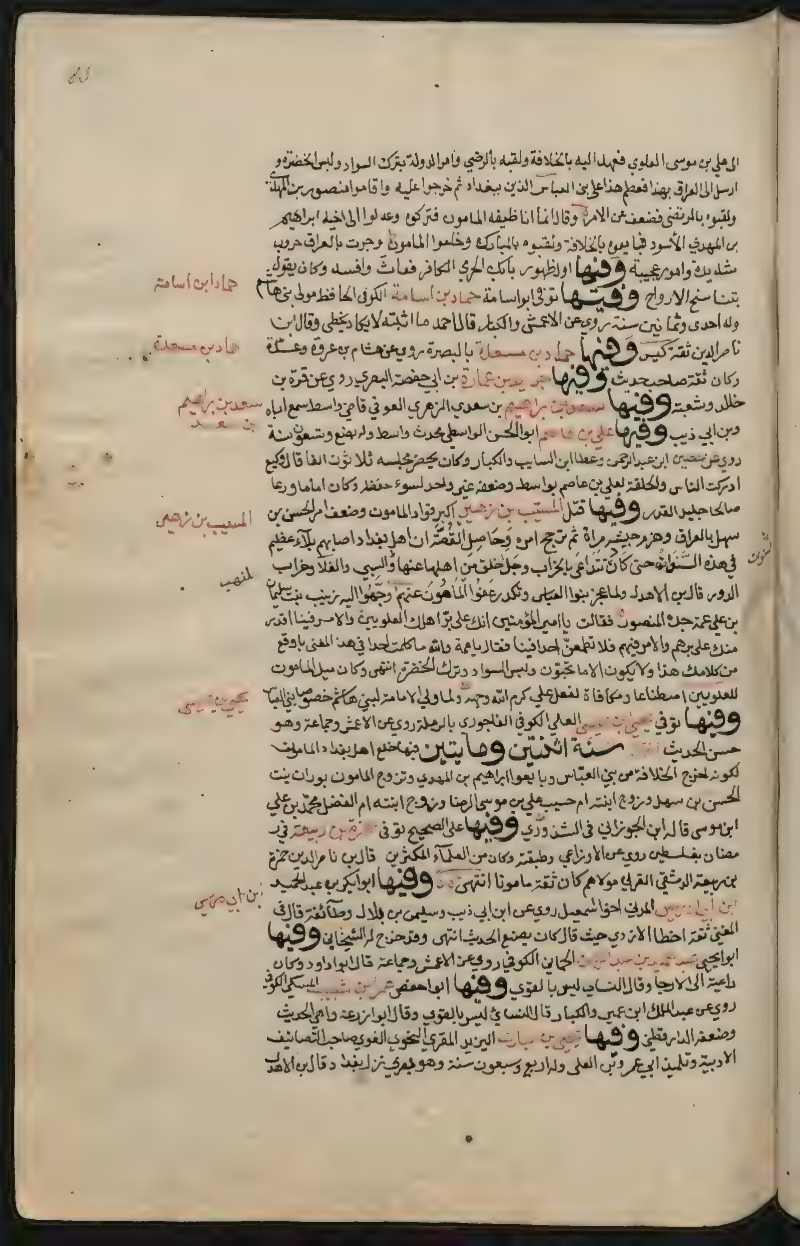 الى علي بن موسى العلوي فعهد اليه بالخلافة ولقبه بالرضي وامر الدولة بترك السواد ولبس الخضرة و
ارسل الى العراق بهذا فعظم هذا على بني العباس الذين ببغداد ثم خرجوا عليه واقاموا منصور بن المهدي
ولقبوه بالمرتضى فضعف عن الامر وقال انما انا خليفة المامون فتركوه وعدلوا الى اخيه ابراهيم
بن المهدي الأسود فبايعوه بالخلافة ولقبوه بالمبارك وخلعوا المامون وجرت بالعراق حروب
شديدة وامور عجيبة وفيها اول ظهور بابك الخرمي الكافر فعاث وافسد وكان يقول
بتناسخ الارواح وفيها توفي ابو اسامة حماد بن اسامة الكوفي الحافظ مولى بني هاشم
حماد ابن اسامة
وله احدى وثمانين سنة روى عن الاعمش والكبار قال احمد ما اثبته لا يكاد يخطي وقال ابن
ناصر الدين ثقة كيس وفيها حماد بن مسعدة بالبصرة روى عن هشام بن عروة وعدة
حماد بن مسعدة
وكان ثقة صاحب حديث وفيها حرمي بن عمارة بن ابي حفصة البصري روى عن قرة بن
خالد وشعبة وفيها سعد بن ابراهيم بن سعد الزهري العوفي قاضي واسط سمع اباه
سعد بن براهيم
بن سعد
وبن ابي ذيب وفيها علي بن عاصم ابو الحسن الواسطي محدث واسط وله بضع وتسعون سنة
روى عن حصين ابن عبد الرحمن وعطا ابن السايب والكبار وكان يحضر مجلسه ثلاثون الفا قال وكيع
ادركت الناس والحلقة لعلي بن عاصم بواسط وضعفه غير واحد لسوء حفظه وكان اماما ورعا
صالحا جليل القدر وفيها قتل المسيب بن زهير اكبر قواد المامون وضعف امر الحسن بن
المسيب بن زهير
سهل بالعراق وهزم جيشه مراة ثم ترجح امره وحاصل القصة ان اهل بغداد اصابهم بلاء عظيم
في هذه السنوات حتى كادت تتداعى بالخراب وجل خلق من اهلها عنها والسبي والغلا وخراب
الدور قال بن الاهدل ولما عجز بنوا العباس وتكدر عفوا المامون عنهم وجهوا اليه زينب بنت سليمان
بن علي عمة جده المنصور فقالت يا امير المؤمنين انك على بر اهلك العلويين والامر فينا اقدر
منك على برهم والامر فيهم فلا تطمعن احدا فينا فقال يا عمة والله ما كلمت احدا في هذا المعنى باوقع
من كلامك هذا ولا يكون الا ما تحبون ولبس السواد وترك الخضرة انتهى وكان ميل المامون
للعلويين اصطناعا ومكافاة لفعل علي كرم الله وجهه لما ولي الامامة لبني هاشم خصوصا بني العباس
وفيها توفي يحيى بن عيسى العلي الكوفي الفاخوري بالرملة روى عن الاعمش وجماعة وهو
يحيى بن عيسى
حسن الحديث سنة اثنتين ومايتين فيها خلع اهل بغداد المامون
لكونه اخرج الخلافة من بني العباس وبايعوا ابراهيم بن المهدي وتزوج المامون بوران بنت
الحسن بن سهل وزوج ابنته ام حبيب علي بن موسى الرضا وزوج ابنته ام الفضل محمد بن علي
ابن موسى قاله ابن الجوزي في الشذور وفيها على الصحيح توفي ضمرة بن ربيعة في ر
مضان بفلسطين روى عن الاوزاعي وطبقته وكان من العلماء المكثرين قال بن ناصر الدين ضمرة
بن ربيعة الدمشقي القرشي مولاهم كان ثقة مامونا انتهى وفيها ابو ابكر بن عبد الحميد
ابن ابي اويس المدني اخو اسمعيل روى عن ابن ابي ذيب وسليمن بن بلال وطائفة قال في
المغني ثقة اخطا الازدي حيث قال كان يضع الحديث انتهى وقد خرج له الشيخان وفيها
ابو يحيى عبد الحميد بن عبد الرحمن الحماني الكوفي روى عن الاعمش وجماعة قال ابو داود وكان
داعية الى الارجا وقال النساي ليس بالقوي وفيها ابو حفص عمر بن شبيب المسلي الكوفي
روى عن عبد الملك ابن عمير والكبار قال النسائي ليس بالقوي وقال ابو زرعة واهي الحديث
وضعفه الدارقطني وفيها يحيى بن مبارك اليزيدي المقري النحوي اللغوي صاحب التصانيف
الادبية وتلميذ ابي عمرو بن العلى وله اربع وسبعون سنة وهو بصري نزل بغداد قال بن الاهدل